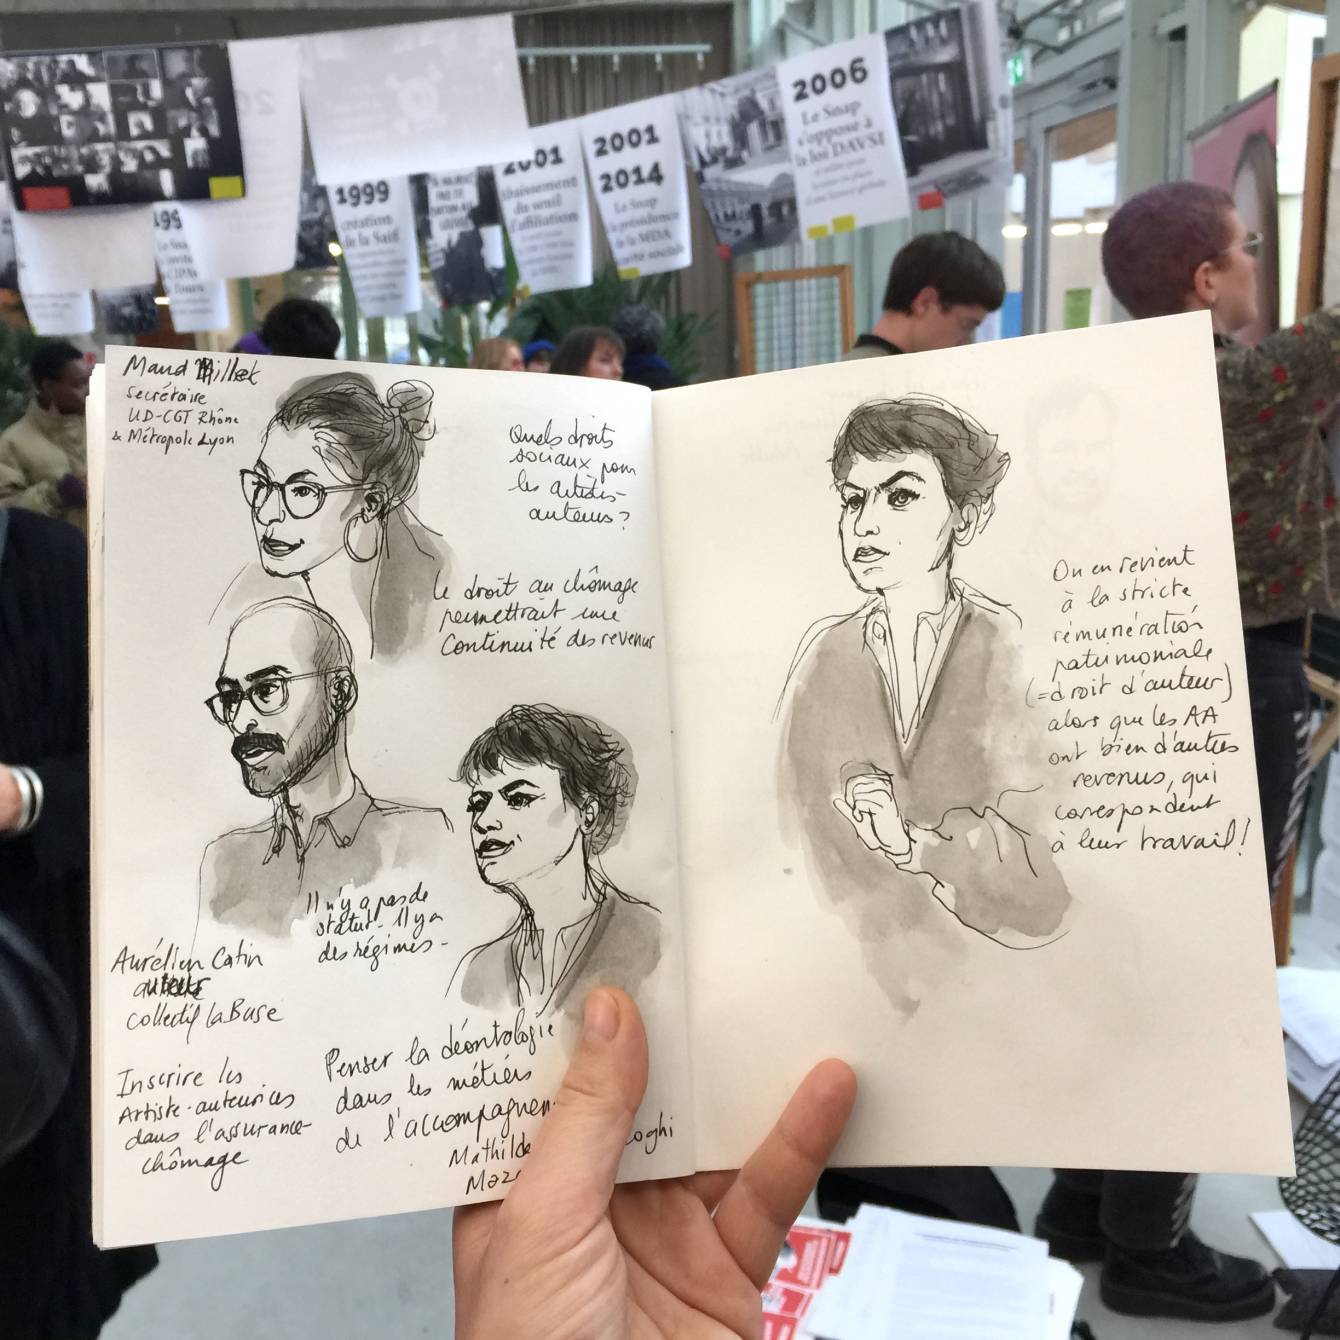 1999
création
de la Saif
2001
du seuil
d'affiliation
2001
2014
Le Snap
présidence
de la MDA
2006
Le Snap
s'oppose à
la loi DAVSI
Maud Millet
secrétaire
UD-CGT Rhône
& Métropole Lyon
Quels droits
sociaux pour
les artistes-
auteurs ?
Le droit au chômage
permettrait une
continuité des revenus
Il n'y a pas de
statut - Il y a
des régimes -
Aurélien Catin
auteur
collectif La Buse
Inscrire les
Artiste·auteurices
dans l'assurance-
chômage
Penser la déontologie
dans les métiers
de l'accompagnem
Mathilde
On en revient
à la stricte
rémunération
patrimoniale
(= droit d'auteur)
alors que les AA
ont bien d'autres
revenus, qui
correspondent
à leur travail !